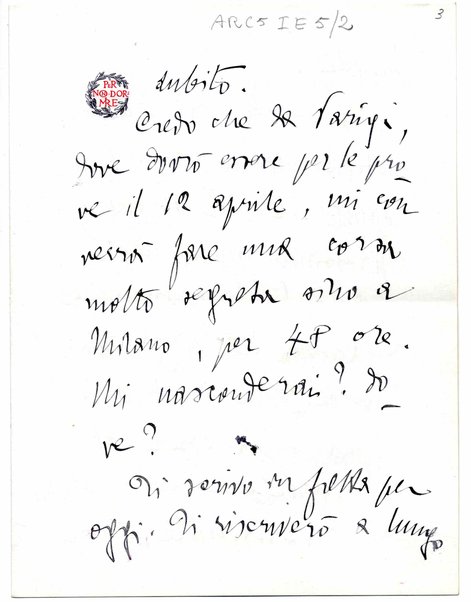 ARC5 IE 5/2
3
PER
NON DOR
MIRE
dubito.
Credo che da Parigi,
dove dovrò essere per le pro
ve il 12 aprile, mi con
verrà fare una corsa
molto segreta sino a
Milano, per 48 ore.
Mi nasconderai? Do
ve?
Ti scrivo in fretta per
oggi. Ti riscriverò a lungo